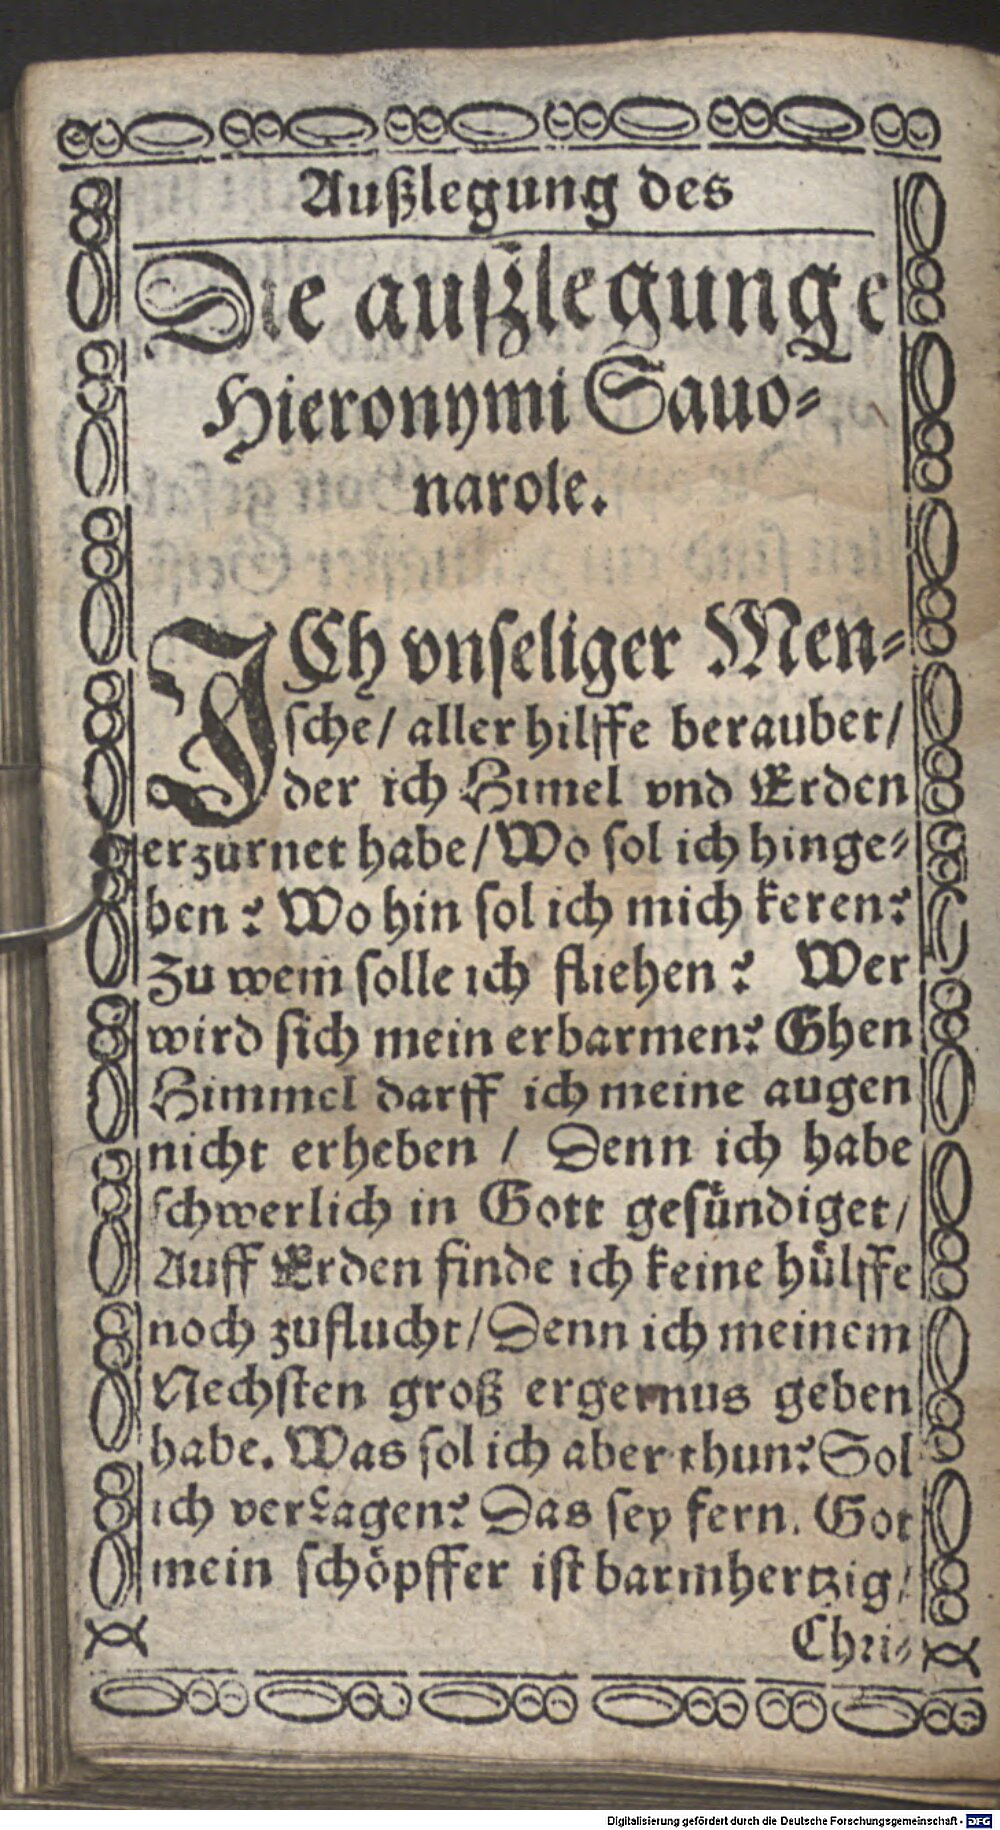 Außlegung des
Die außlegunge
Hieronymi Sauo-
narole.
ICh vnseliger Men-
sche/ aller hilffe beraubet/
der ich Himel vnd Erden
erzurnet habe/ Wo sol ich hinge-
ben? Wo hin sol ich mich keren?
Zu wem solle ich fliehen? Wer
wird sich mein erbarmen? Ghen
Himmel darff ich meine augen
nicht erheben / Denn ich habe
schwerlich in Gott gesündiget/
Auff Erden finde ich keine hülffe
noch zuflucht/ Denn ich meinem
Nechsten groß ergernus geben
habe. Was sol ich aber thun? Sol
ich verzagen? Das sey fern. Got
mein schöpffer ist barmhertzig/
Chri-
Digitalisierung gefördert durch die Deutsche Forschungsgemeinschaft - DFG